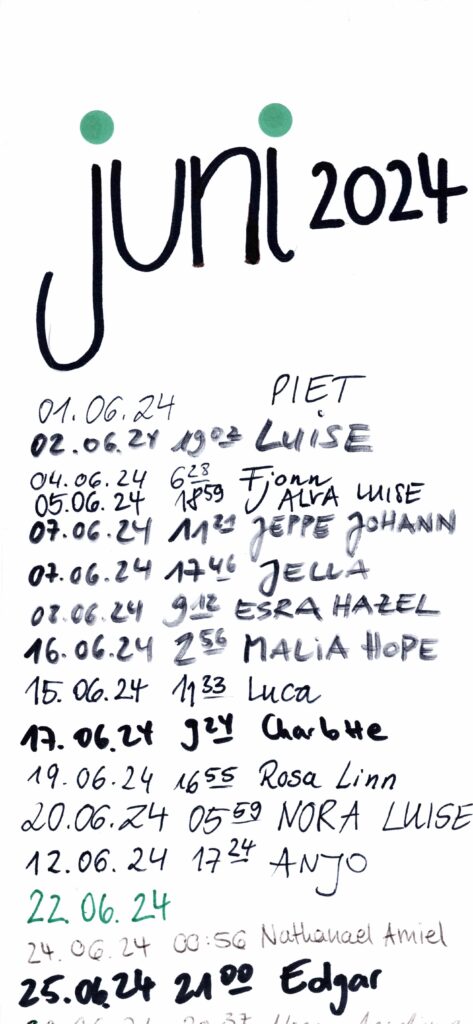 juni 2024
01.06.24 PIET
02.06.24 19 07 LUISE
04.06.24 6 28 Fjonn
05.06.24 18 59 ALVA LUISE
07.06.24 11 21 JEPPE JOHANN
07.06.24 17 46 JELLA
08.06.24 9 12 ESRA HAZEL
16.06.24 2 56 MALIA HOPE
15.06.24 11 33 Luca
17.06.24 9 24 Charlotte
19.06.24 16 55 Rosa Linn
20.06.24 05 59 NORA LUISE
12.06.24 17 24 ANJO
22.06.24
24.06.24 00:56 Nathanael Amiel
25.06.24 21 00 Edgar